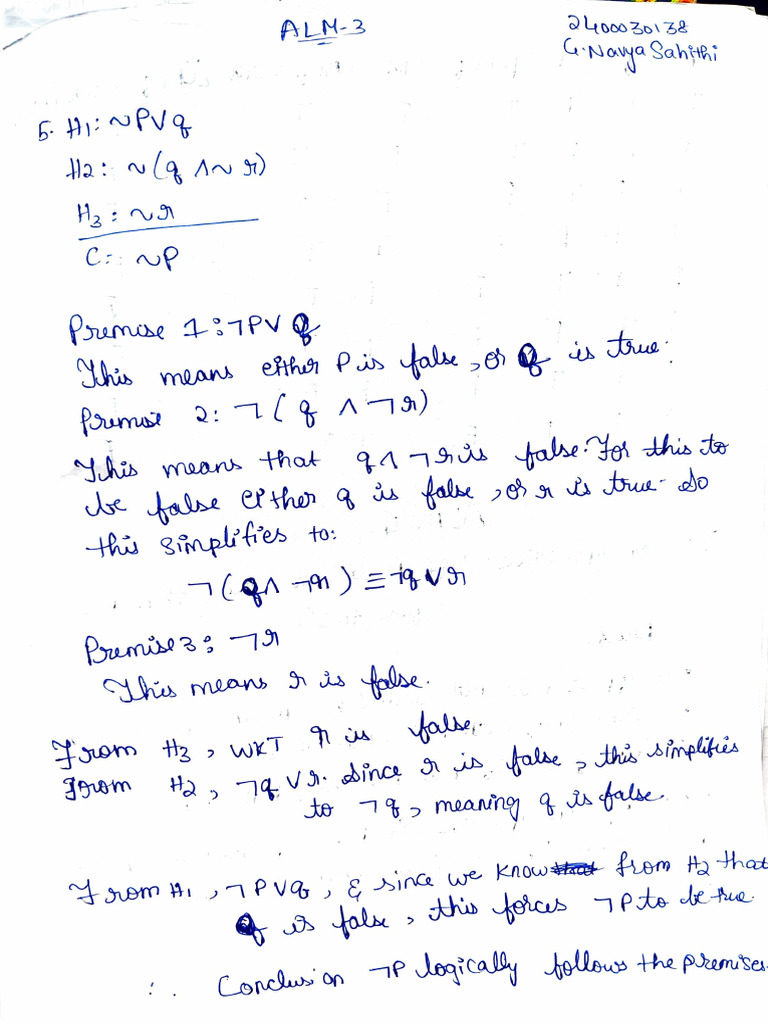 ALM-3
2400030138
G. Navya Sahithi
5. H1: ~P∨q
H2: ~(q ∧~ r)
H3: ~r
C: ~P
Premise 1: ¬P∨ q
This means either P is false, or q is true.
Premise 2: ¬(q ∧ ¬r)
This means that q∧ ¬r is false. For this to
be false either q is false, or r is true. So
this simplifies to:
¬(q∧ ¬r) ≡ ¬q∨r
Premise 3: ¬r
This means r is false.
From H3, WKT r is false.
From H2, ¬q∨r. Since r is false, this simplifies
to ¬q, meaning q is false.
From H1, ¬P∨q, & since we know from H2 that
q is false, this forces ¬P to be true.
∴ Conclusion ¬P logically follows the premises.